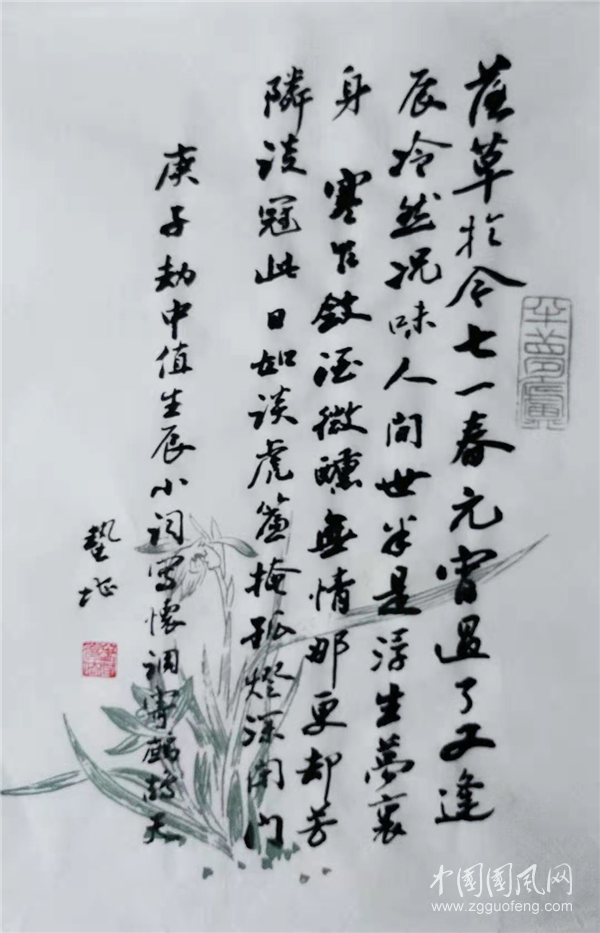 草於今七一春元宵過了又逢
辰冷然况味人间世半是浮生夢裏
身 寒斂酒微醺無情那更却芳
隣談冠此日如谈虎簾掩孤燈深闭门
庚子劫中值生辰小词写懷调寄鹧鸪天
中國國风网
www.zgguofeng.com